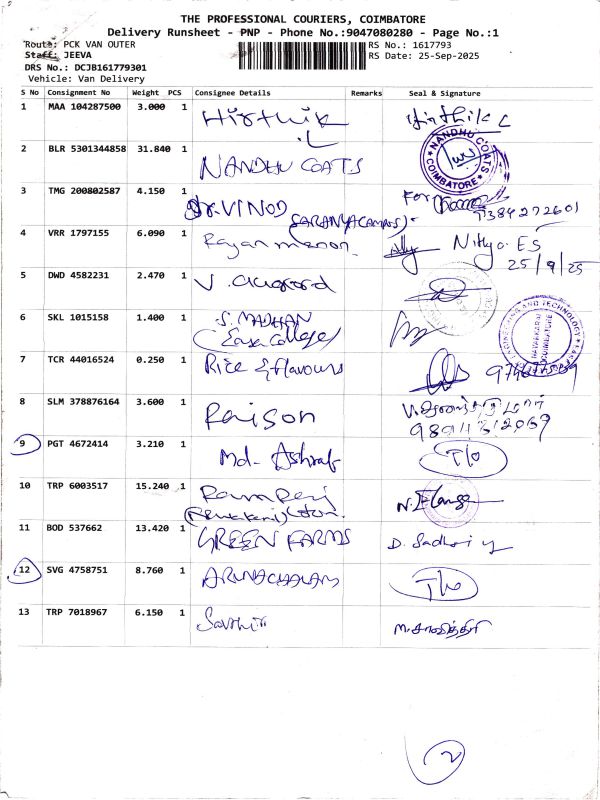 THE PROFESSIONAL COURIERS, COIMBATORE
Delivery Runsheet - PNP - Phone No.:9047080280 - Page No.:1
Route: PCK VAN OUTER RS No.: 1617793
Staff: JEEVA RS Date: 25-Sep-2025
DRS No.: DCJB161779301
Vehicle: Van Delivery
S No Consignment No Weight PCS Consignee Details Remarks Seal & Signature
1 MAA 104287500 3.000 1 Hirthik L Hirthik L
2 BLR 5301344858 31.840 1 NANDHU COATS NANDHU COATS COIMBATORE
3 TMG 200802587 4.150 1 VINOD For
(SARANYA CAMPUS) 7384272601
4 VRR 1797155 6.090 1 Rajan menon Nithya. ES
25/9/25
5 DWD 4582231 2.470 1
6 SKL 1015158 1.400 1 S. MADHAN ENGINEERING AND TECHNOLOGY NAVAKKARAI COIMBATORE
(Easa College)
7 TCR 44016524 0.250 1 Rice & flavours
8 SLM 378876164 3.600 1 Raison
9 PGT 4672414 3.210 1 Md- Ashraf T/o
10 TRP 6003517 15.240 1 Ramraj
11 BOD 537662 13.420 1 GREEN FARMS D. Sadhriy
12 SVG 4758751 8.760 1 ARUNACHALAM T/o
13 TRP 7018967 6.150 1 Savithiri M. சாவித்திரி
2